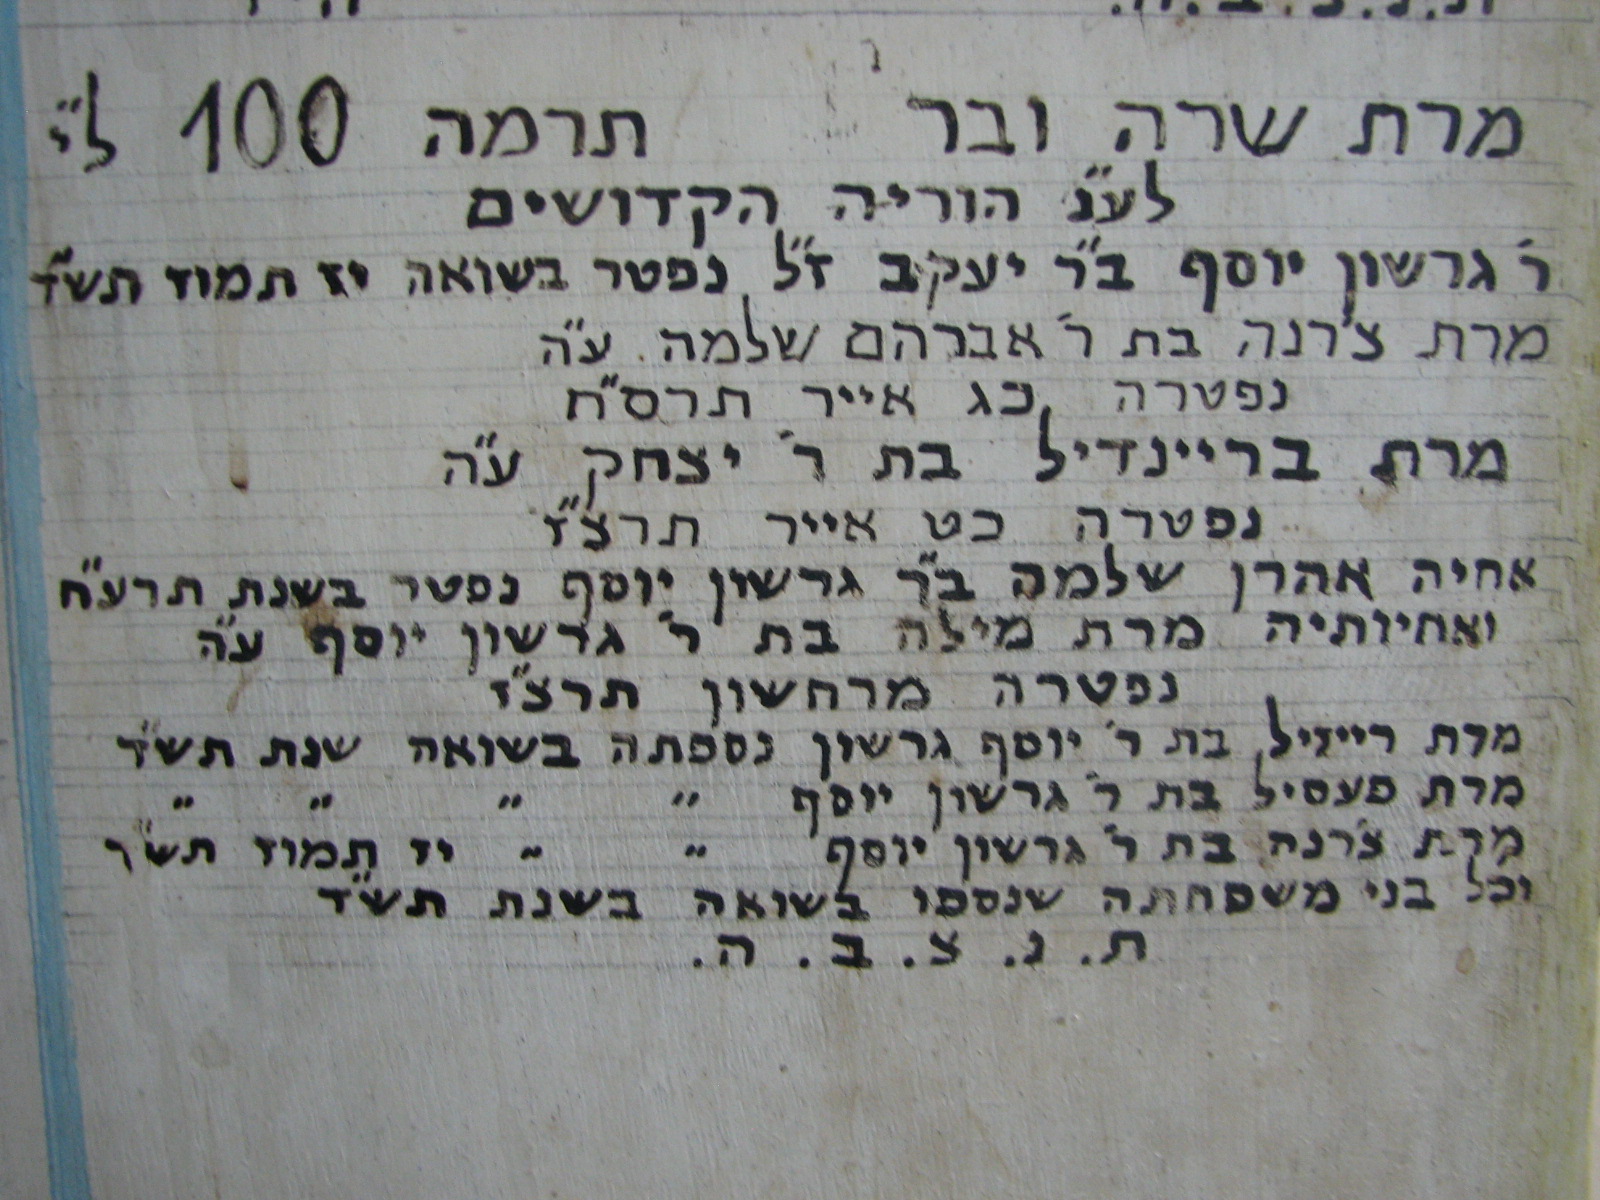 מרת שרה ובר תרמה 100 ל"י
לע"נ הוריה הקדושים
ר' גרשון יוסף ב"ר יעקב ז"ל נפטר בשואה יז תמוז תש"ד
מרת צ'רנה בת ר' אברהם שלמה ע"ה
נפטרה כג אייר תרס"ח
מרת בריינדיל בת ר' יצחק ע"ה
נפטרה כט אייר תרצ"ז
אחיה אהרן שלמה ב"ר גרשון יוסף נפטר בשנת תרע"ח
ואחיותיה מרת מילה בת ר' גרשון יוסף ע"ה
נפטרה מרחשון תרצ"ז
מרת רייזיל בת ר' יוסף גרשון נספתה בשואה שנת תש"ד
מרת פעסיל בת ר' גרשון יוסף " " " "
מרת צ'רנה בת ר' גרשון יוסף " " יז תמוז תש"ד
וכל בני משפחתה שנספו בשואה בשנת תש"ד
ת. נ. צ. ב. ה.